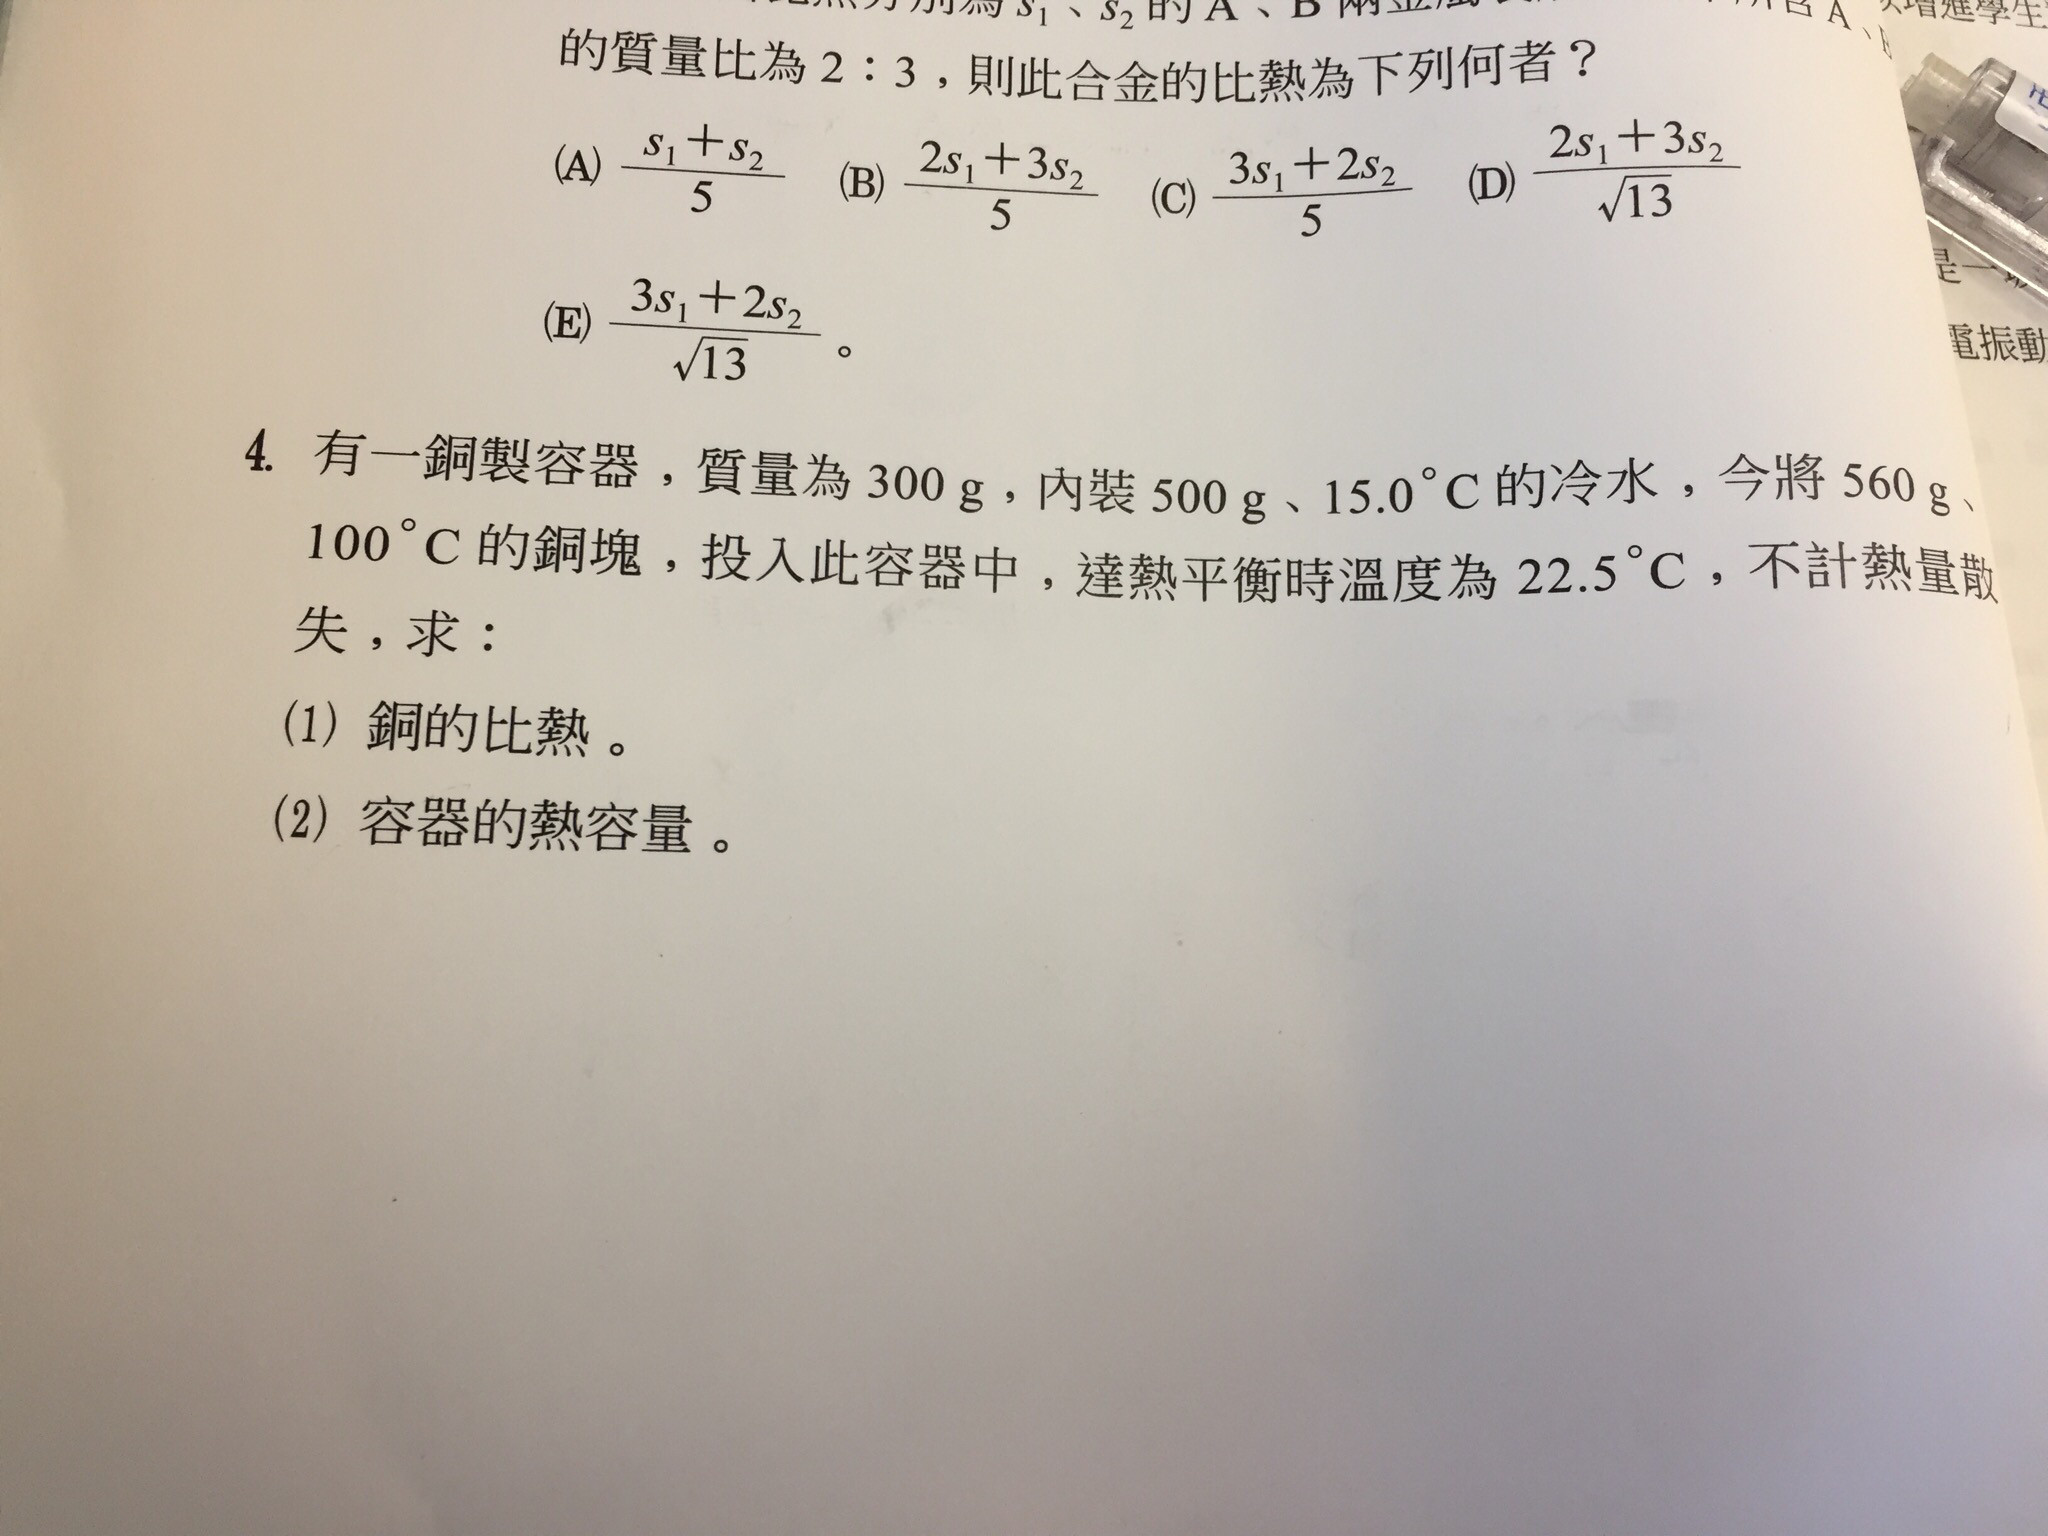 分別為 s₁、s₂ 的 A、B 兩金屬
的質量比為 2：3，則此合金的比熱為下列何者？
(A) (s₁＋s₂)/5 (B) (2s₁＋3s₂)/5 (C) (3s₁＋2s₂)/5 (D) (2s₁＋3s₂)/√13
(E) (3s₁＋2s₂)/√13 。
4. 有一銅製容器，質量為 300 g，內裝 500 g、15.0°C 的冷水，今將 560 g、
100°C 的銅塊，投入此容器中，達熱平衡時溫度為 22.5°C，不計熱量散
失，求：
(1) 銅的比熱。
(2) 容器的熱容量。
增進學生
是一
電振動